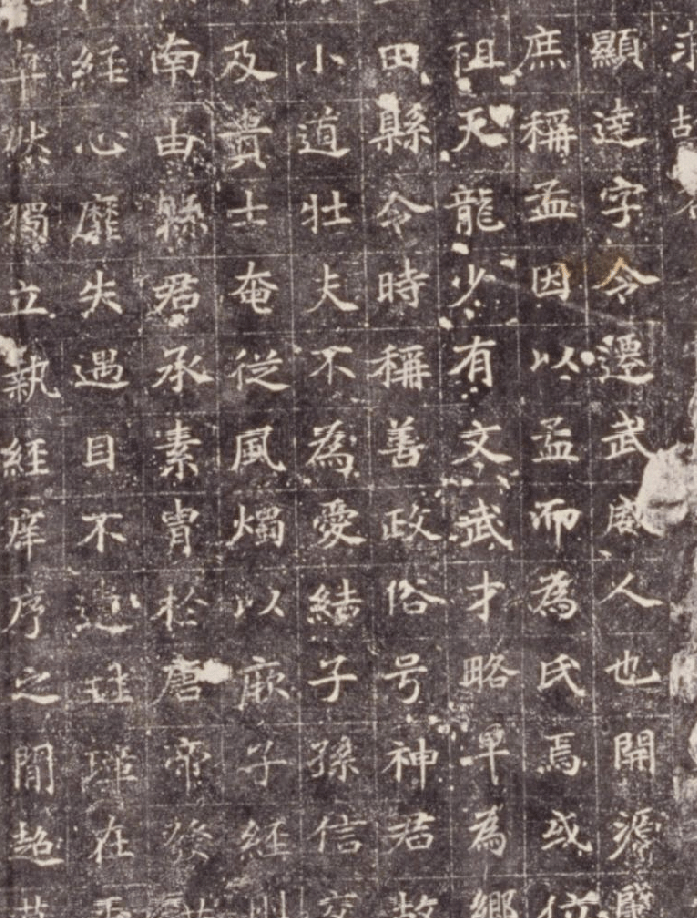 故
顯達字令遷武威人也開源
庶稱孟因以孟而為氏焉或
祖天龍少有文武才略早為鄉
田縣令時稱善政俗号神君故
小道壯夫不為愛結子孫信交
及賁士奄從風燭以厥子經則
南由縣君承素胄於唐帝發
經心靡失遇目不遺在
卓然獨立執經庠序之間超